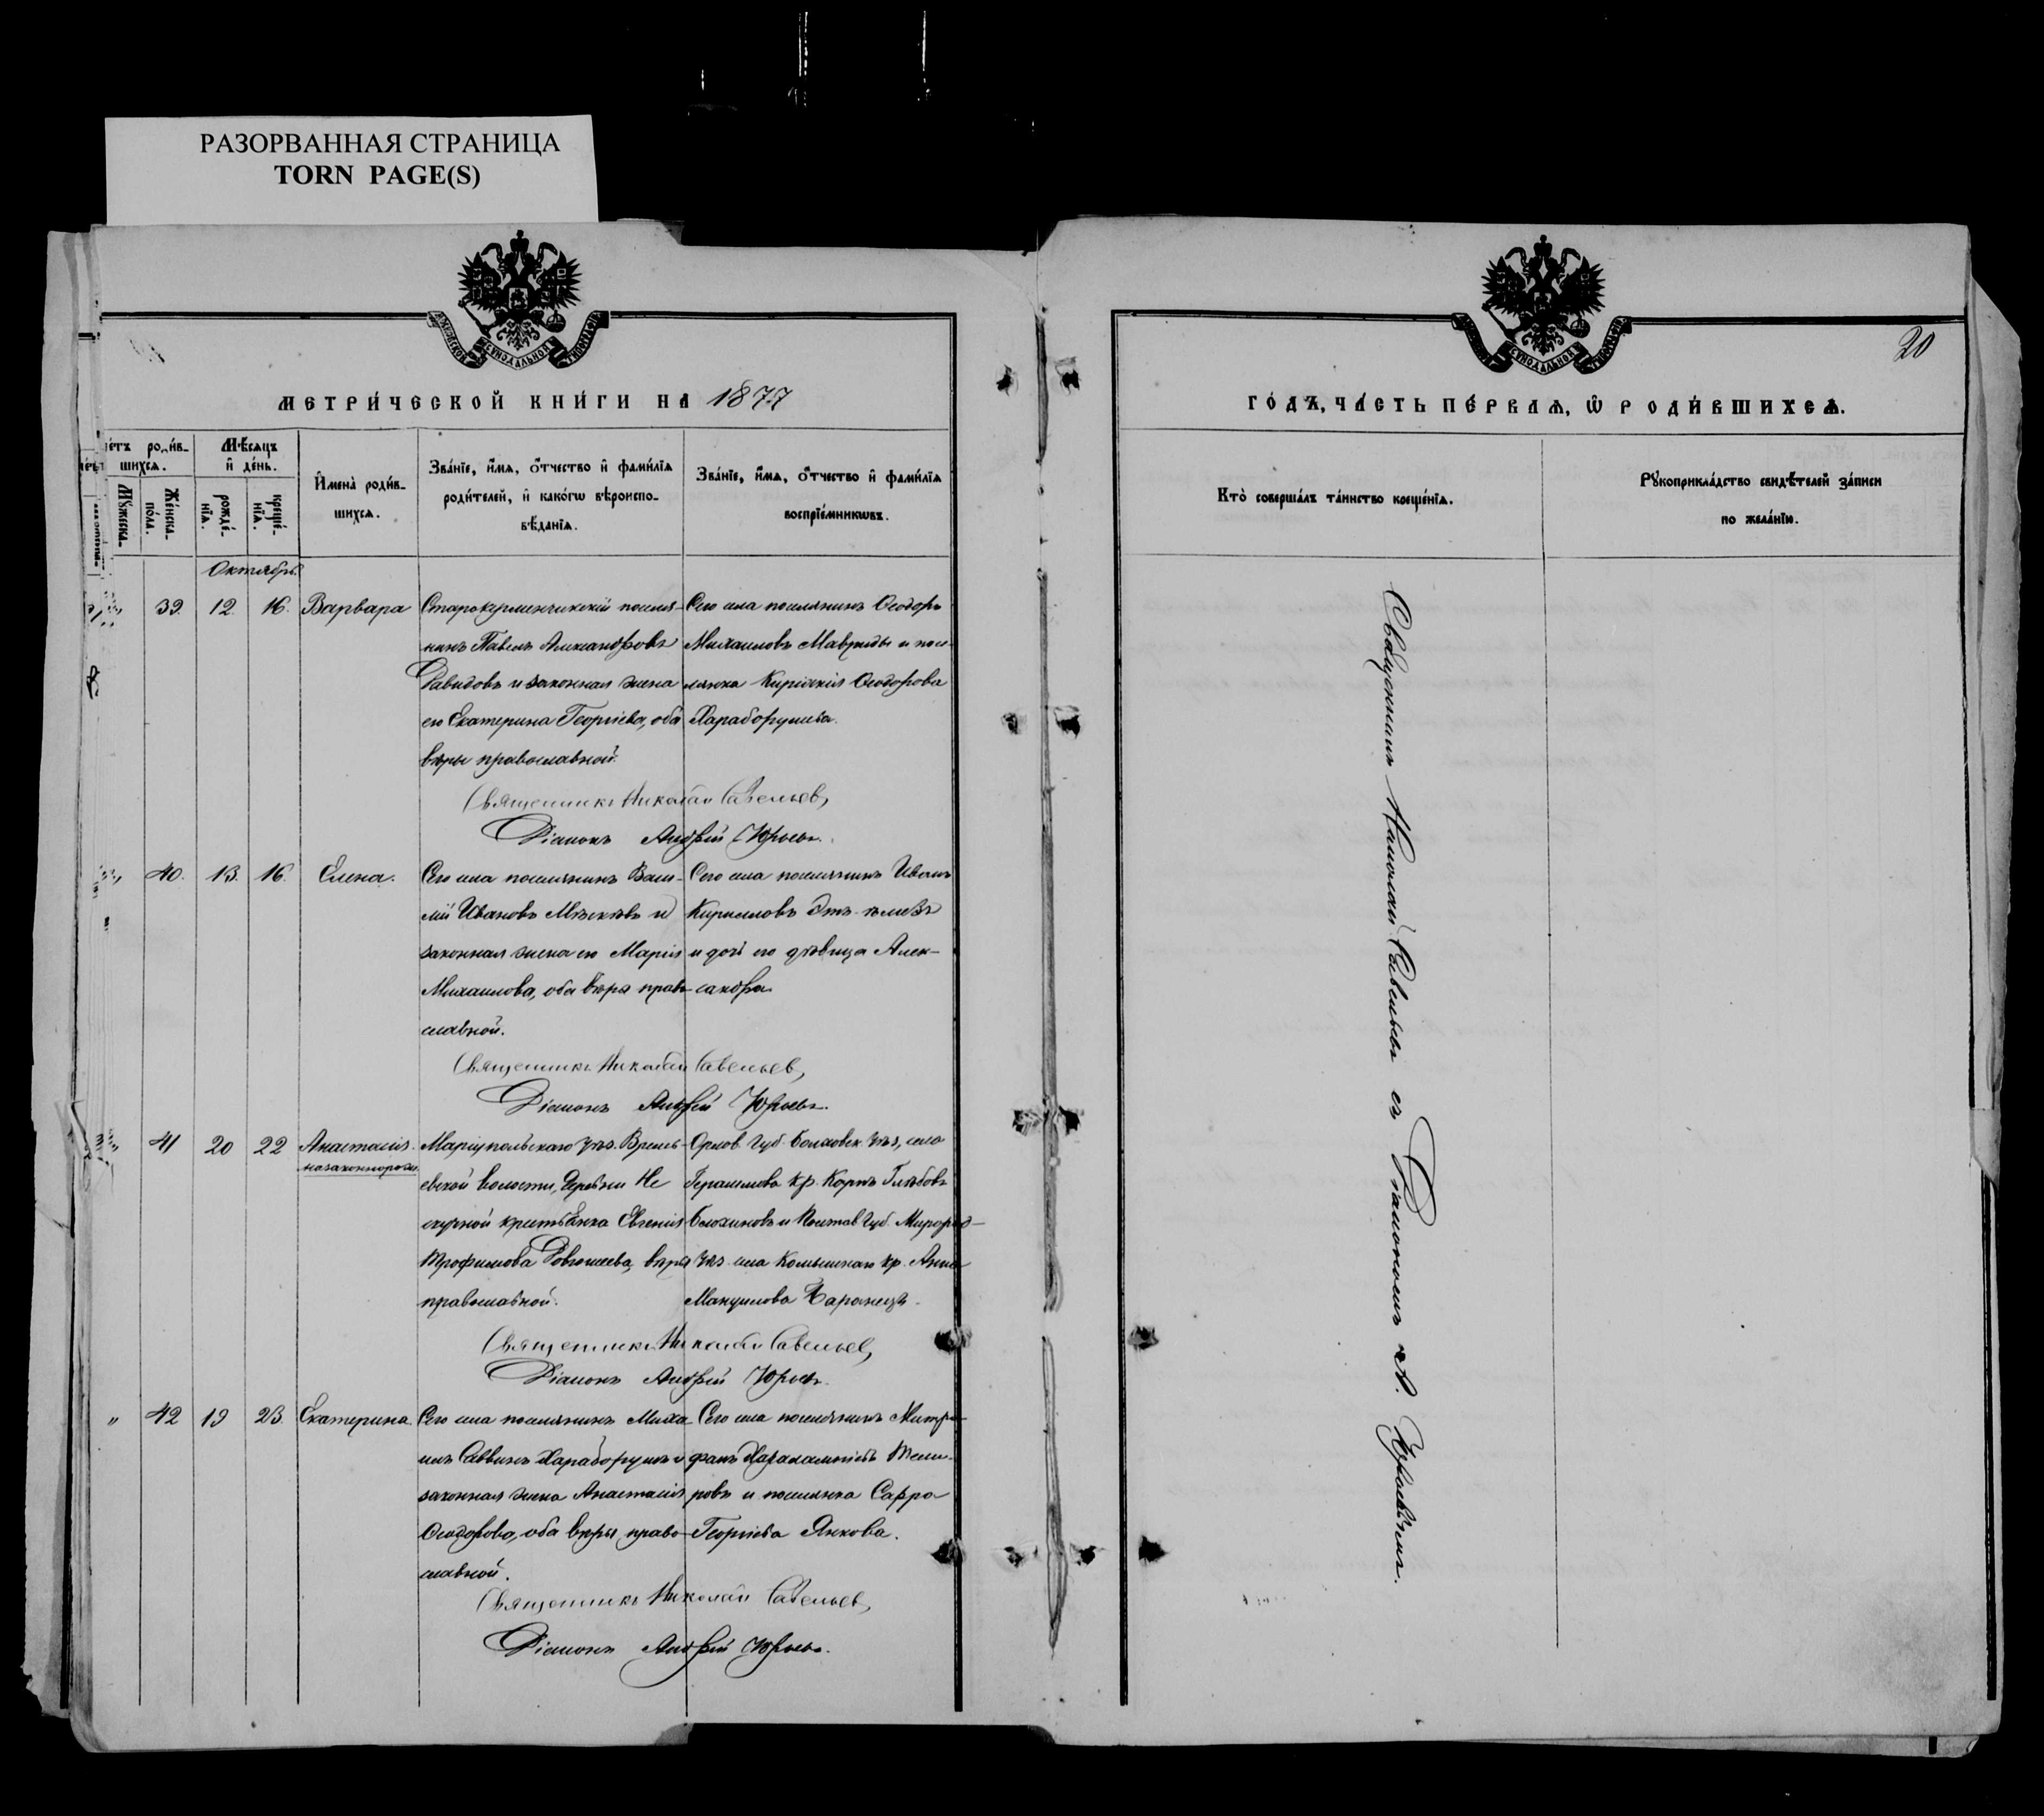 РАЗОРВАННАЯ СТРАНИЦА
TORN PAGE(S)
МЕТРИ́ЧЕСКОЙ КНИ́ГИ НА 1877
родив-
шихсѧ.
Мѣ́сѧцъ
и҆ де́нь.
Мꙋ́жеска-
Же́нска-
по́ла.
рожде́-
нїѧ.
креще́-
нїѧ.
И҆мена̀ роди́в-
шихсѧ.
Зва́нїе, и҆́мѧ, ѻ҆́тчество и҆ фами́лїѧ
роди́телей, и҆ како́гѡ вѣроиспо-
вѣ́данїѧ.
Зва́нїе, и҆́мѧ, ѻ҆́тчество и҆ фами́лїѧ
воспрїе́мникѡвъ.
Октябрь.
39. 12. 16. Варвара
Старокерменчикскій поселя-
нинъ Павелъ Александровъ
Давидовъ и законная жена
его Екатерина Георгіева, оба
вѣры православной.
Сего села поселянинъ Ѳеодоръ
Михаиловъ Мавриды и посе-
лянка Киріакія Ѳеодорова
Хараборушева.
Священникъ Николай Савельев,
Діаконъ Андрей Юрьевъ.
40. 13. 16. Елена.
Сего села поселянинъ Васи-
лій Ивановъ и
законная жена его Марія
Михаилова, оба вѣры право-
славной.
Сего села поселянинъ Иванъ
Кирилловъ
и дочь его дѣвица Алек-
сандра
Священникъ Николай Савельев,
Діаконъ Андрей Юрьевъ.
41 20 22 Анастасія.
незаконнорож.
Маріупольскаго уѣз. Времь-
евской волости, деревни Не
скучной крестьянка Евгенія
Трофимова Довгошеева, вѣры
православной.
Орлов. Губ. Болховск. уѣз., село
Герасимова кр. Карпъ Глѣбовъ
Блохиновъ и Полтав Губ. Миргород-
уѣз. села Комышнаго кр. Анна
Мануилова
Священникъ Николай Савельев,
Діаконъ Андрей Юрьевъ.
" 42 19 23. Екатерина
Сего села поселянинъ Миха
илъ Саввинъ Хараборушъ и
законная жена Анастасія
Ѳеодорова, оба вѣры право-
славной.
Сего села поселянинъ Митро-
фанъ Харалампіевъ Теми-
ровъ и поселянка Сафра
Георгіева Янкова.
Священникъ Николай Савельев,
Діаконъ Андрей Юрьевъ.
20
ГО́ДЪ, ЧА́СТЬ ПЕ́РВАѦ, Ѽ РОДИ́ВШИХСѦ.
Кто̀ соверша́лъ та́инство креще́нїѧ.
Рꙋкоприкла́дство свидѣ́телей за́писи
по жела́нїю.
Священникъ Николай Савельевъ съ Діакономъ А. Юрьевымъ.